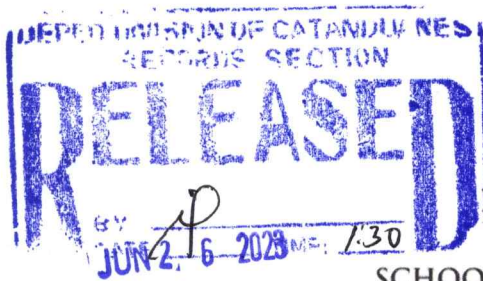 DEPED DIVISION OF CATANDUANES
RECORDS SECTION
RELEASED
BY
JUN 2 6 2023 TIME: 1:30
SCHOO